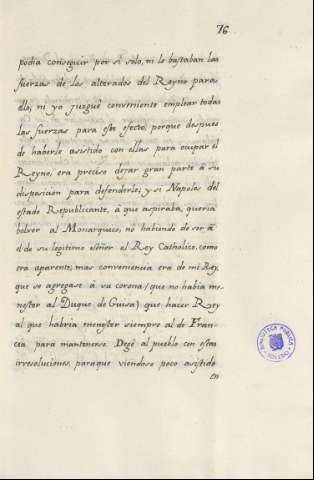 76
podia conseguir por si solo, ni le bastaban las
fuerzas de los alterados del Reyno para
ello, ni yo juzgué conveniente emplear todas
las fuerzas para este efecto, porque despues
de haberle asistido con ellas para ocupar el
Reyno, era preciso dejar gran parte á su
disposicion para defenderle; y si Napoles del
estado Republicante, á que aspiraba, queria
bolver al Monarquico, no habiendo de ser á
el de su legitimo Señor el Rey Catholico, como
era aparente, mas conveniencia era de mi Rey,
que se agregase á su corona (que no habia me-
nester al Duque de Guisa) que hacer Rey
al que habria menester siempre al de Fran-
cia para mantenerse. Degé al pueblo con estas
irresoluciones, paraque viendose poco asistido
en
BIBLIOTECA PUBLICA
TOLEDO